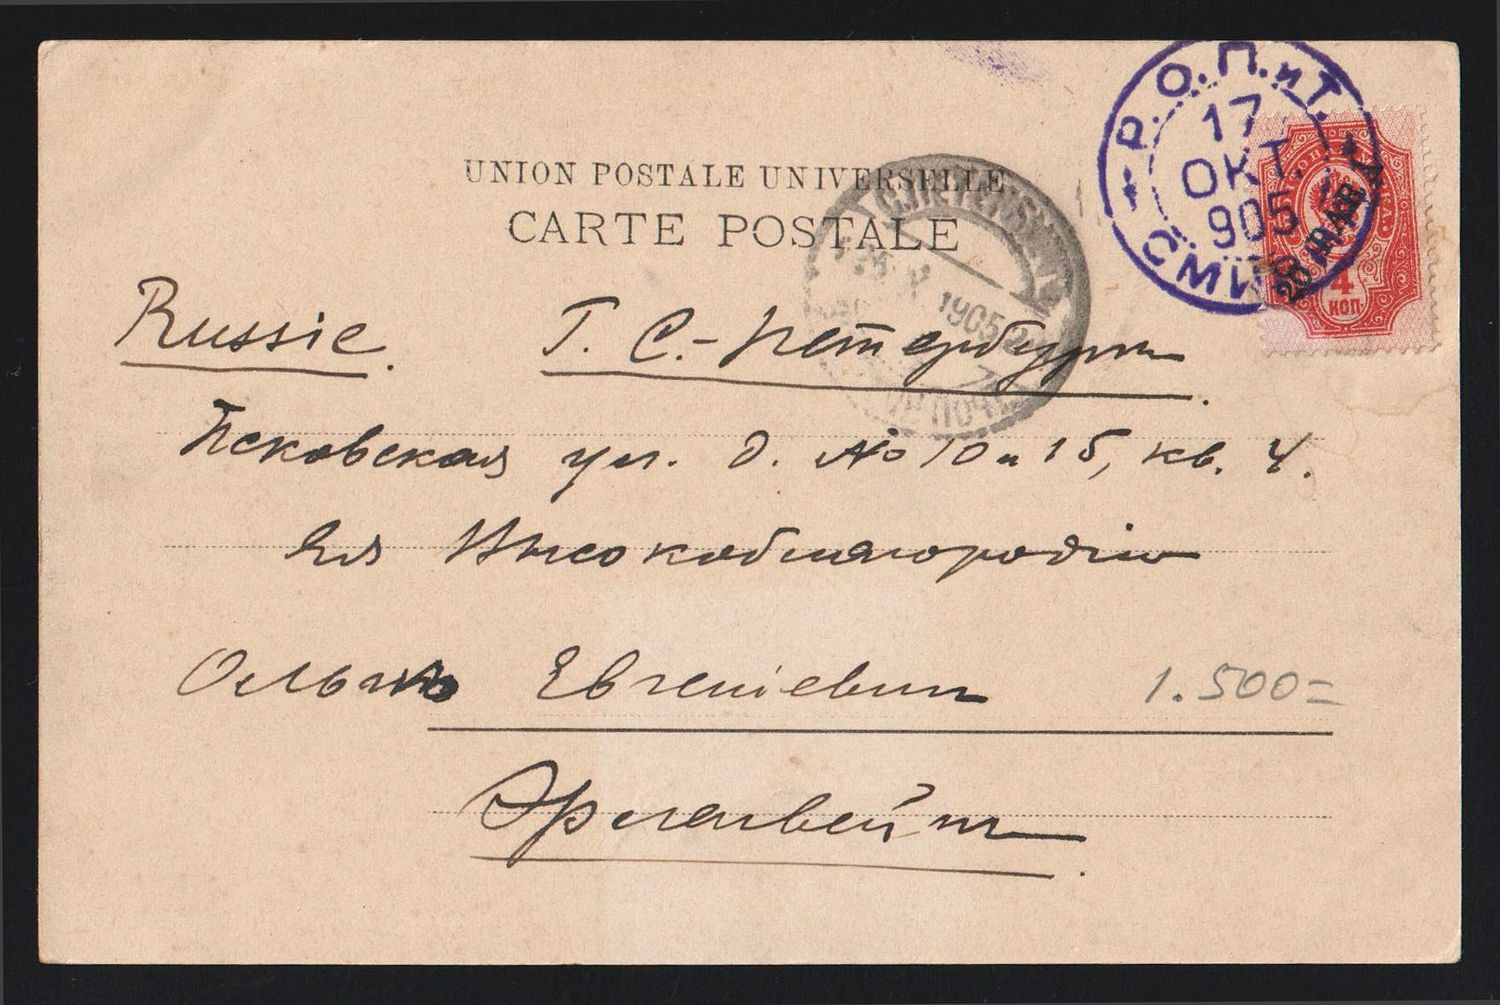 Р.О.П.иТ.
17
ОКТ.
905
СМИ
UNION POSTALE UNIVERSELLE
CARTE POSTALE
С.ПЕТЕРБУРГЪ
1905
ПОЧТ
20 ПАРА
4
КОП
Russie. Г. С.-Петербургъ.
Псковская ул. д. № 10 и 15, кв. 4.
Ея Высокоблагородію
Ольгѣ Евгеніевнѣ
1.500=